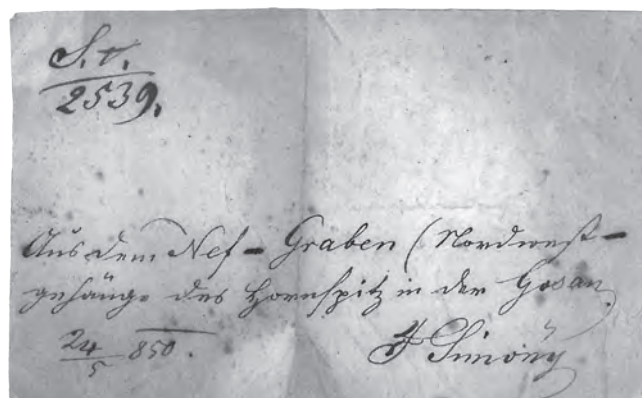 S. v.
2539.
Aus dem Nef-Graben (Nordwest-
gehänge des Hornspitz in der Gosau
24/5 850.
F Simony